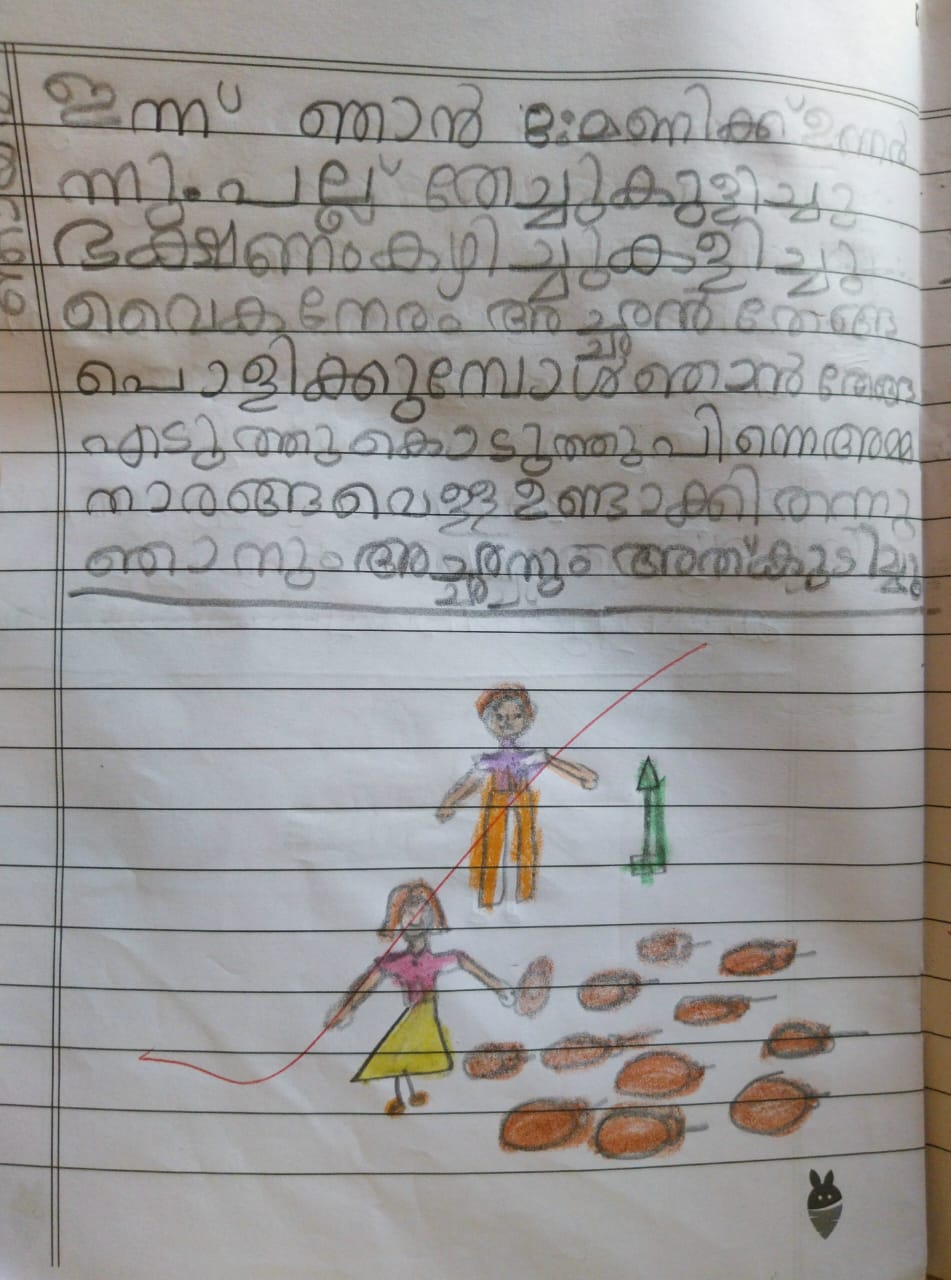 ഇന്ന് ഞാൻ 8:മണിക്ക് ഉണർ
ന്നു. പല്ല് തേച്ചു കുളിച്ചു
ഭക്ഷണം കഴിച്ചു കളിച്ചു
വൈകുന്നേരം അച്ഛൻ തേങ്ങ
പൊളിക്കുമ്പോൾ ഞാൻ തേങ്ങ
എടുത്തു കൊടുത്തു പിന്നെ അമ്മ
നാരങ്ങവെള്ള ഉണ്ടാക്കി തന്നു
ഞാനും അച്ഛനും അത് കുടിച്ചു